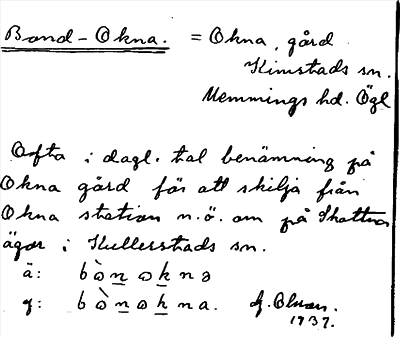 Bond-Okna. = Okna, gård
Kimstads sn.
Memmings hd. Ögl
Ofta i dagl. tal benämning på
Okna gård för att skilja från
Okna station n.ö. om på Skattna
ägor i Kullerstads sn.
ä: b ò n o k n ə
y: b ò n o k n a.
1937.